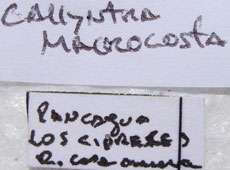 Callyntra
Macrocosta
Rancagua
Los Cipreses
R.